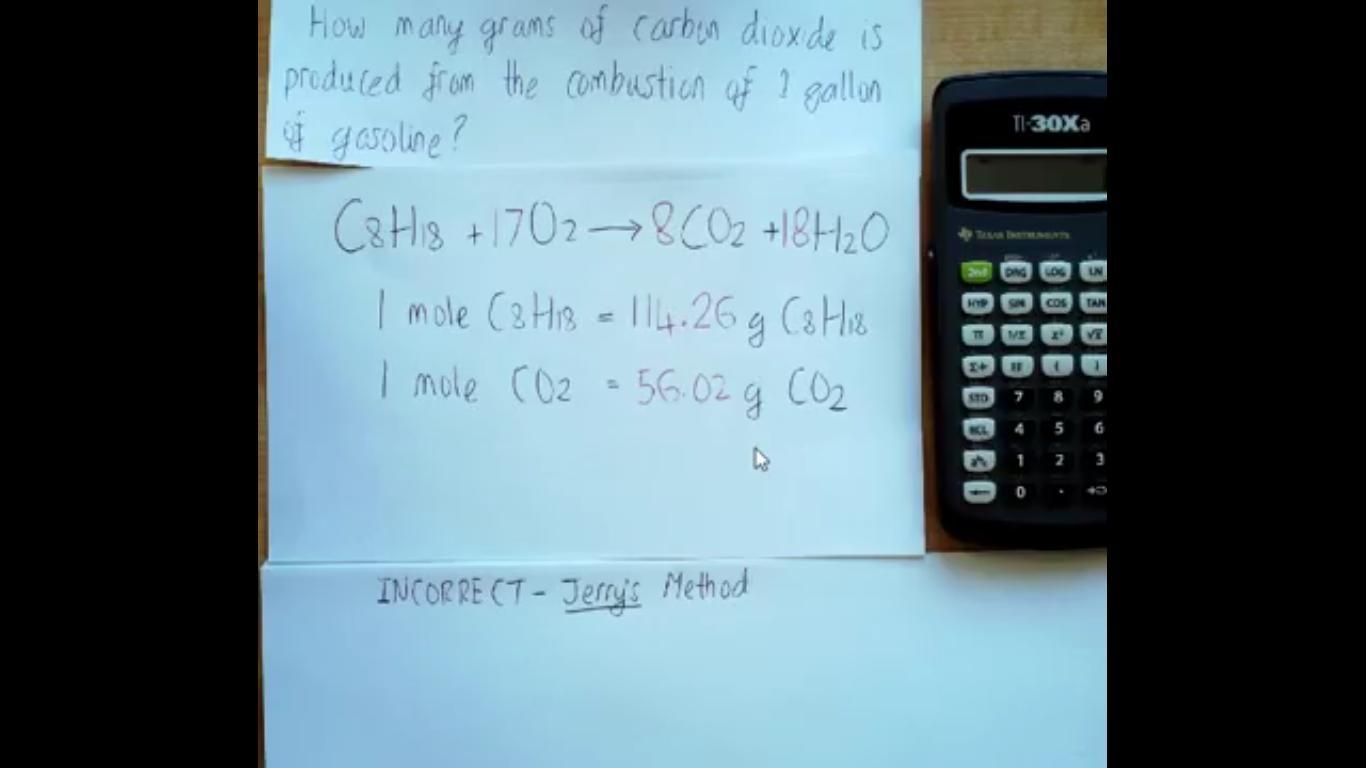 How many grams of carbon dioxide is
produced from the combustion of 1 gallon
of gasoline?
C8H18 + 17O2 → 8CO2 + 18H2O
1 mole C8H18 = 114.26 g C8H18
1 mole CO2 = 56.02 g CO2
INCORRECT - Jerry's Method
TI-30Xa
TEXAS INSTRUMENTS
2nd DRG LOG LN
HYP SIN COS TAN
π 1/x x² √x
Σ+ EE ( )
STO 7 8 9
RCL 4 5 6
1 2 3
0 .